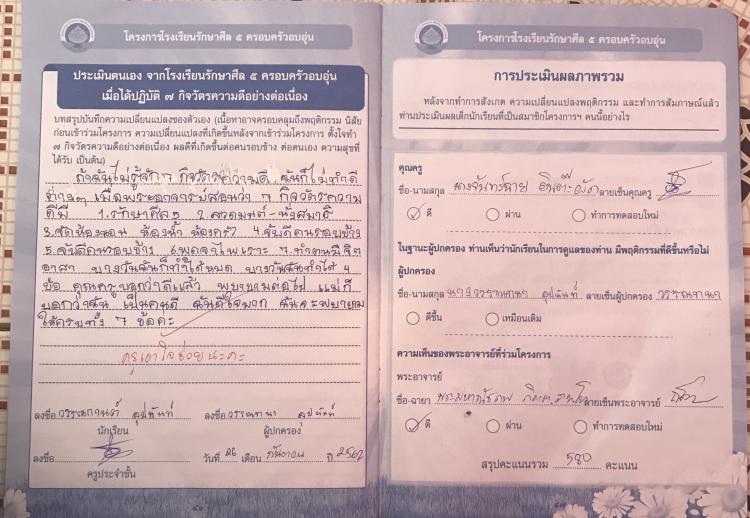 โครงการโรงเรียนรักษาศีล ๕ ครอบครัวอบอุ่น
ประเมินตนเอง จากโรงเรียนรักษาศีล ๕ ครอบครัวอบอุ่น
เมื่อได้ปฏิบัติ ๗ กิจวัตรความดีอย่างต่อเนื่อง
บทสรุปบันทึกความเปลี่ยนแปลงของตัวเอง (เนื้อหาอาจครอบคลุมถึงพฤติกรรม นิสัย
ก่อนเข้าร่วมโครงการ ความเปลี่ยนแปลงที่เกิดขึ้นหลังจากเข้าร่วมโครงการ ตั้งใจทำ
๗ กิจวัตรความดีอย่างต่อเนื่อง ผลดีที่เกิดต่อคนรอบข้าง ต่อตนเอง ความสุขที่
ได้รับ เป็นต้น)
ถ้าฉันไม่รู้จัก 7 กิจวัตรความดี ฉันก็ไม่ทำดี
ต่างๆ เมื่อพระอาจารย์สอนว่า 7 กิจวัตรความ
ดีมี 1.รักษาศีล5 2.สวดมนต์-นั่งสมาธิ
3.จัดห้องนอน ห้องน้ำ ห้องครัว 4.จับดีคนรอบข้าง
5.จับดีคนรอบข้าง 6.พูดจาไพเราะ 7.ทำตนมีจิต
อาสา บางวันฉันก็ทำได้หมด บางวันฉันทำได้ 4
ข้อ คุณครูบอกว่าดีแล้ว พยายามต่อไป แม่ก็
บอกว่าฉัน เป็นคนดี ฉันดีใจมาก ฉันจะพยายาม
ให้ครบทั้ง 7 ข้อค่ะ
ครูเอาใจช่วยนะคะ
ลงชื่อ วรรณกานต์ อุปนันท์ ลงชื่อ วรรณทนา อุปนันท์
นักเรียน ผู้ปกครอง
ลงชื่อ วันที่ 26 เดือน กันยายน ปี 2562
ครูประจำชั้น
โครงการโรงเรียนรักษาศีล ๕ ครอบครัวอบอุ่น
การประเมินผลภาพรวม
หลังจากทำการสังเกต ความเปลี่ยนแปลงพฤติกรรม และทำการสัมภาษณ์แล้ว
ท่านประเมินผลเด็กนักเรียนที่เป็นสมาชิกโครงการฯ คนนี้อย่างไร
คุณครู
ชื่อ-นามสกุล นางจันทร์ฉาย ลายเซ็นคุณครู
ดี ผ่าน ทำการทดสอบใหม่
ในฐานะผู้ปกครอง ท่านเห็นว่านักเรียนในการดูแลของท่าน มีพฤติกรรมที่ดีขึ้นหรือไม่
ผู้ปกครอง
ชื่อ-นามสกุล นางวรรณทนา อุปนันท์ ลายเซ็นผู้ปกครอง วรรณทนา
ดีขึ้น เหมือนเดิม
ความเห็นของพระอาจารย์ที่ร่วมโครงการ
พระอาจารย์
ชื่อ-ฉายา ลายเซ็นพระอาจารย์
ดี ผ่าน ทำการทดสอบใหม่
สรุปคะแนนรวม 580 คะแนน